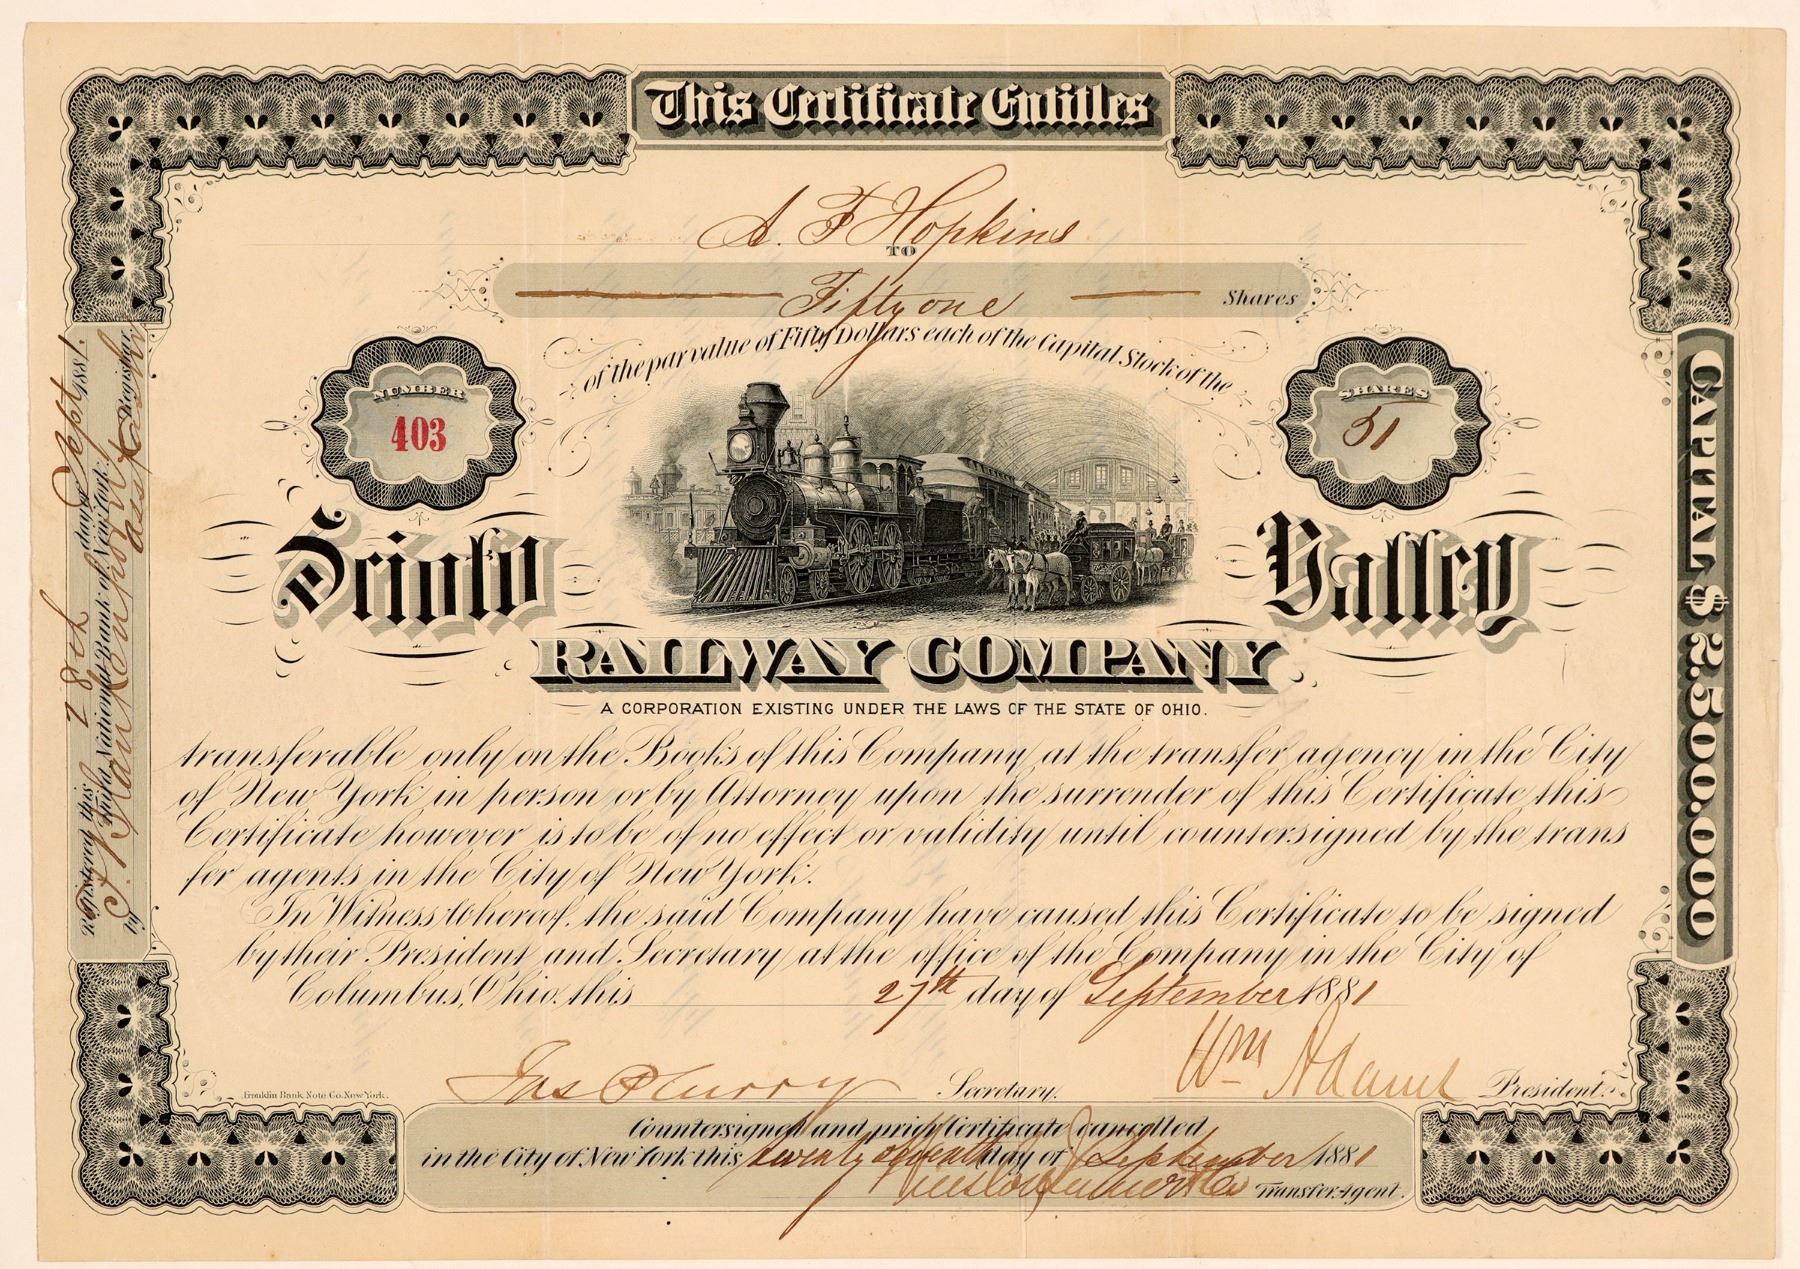 This Certificate Entitles
A. F. Hopkins
TO
Fifty one Shares
of the par value of Fifty Dollars each of the Capital Stock of the
NUMBER
403
SHARES
51
Scioto Valley
RAILWAY COMPANY
A CORPORATION EXISTING UNDER THE LAWS OF THE STATE OF OHIO.
transferable only on the Books of this Company at the transfer agency in the City
of New York in person or by Attorney upon the surrender of this Certificate this
Certificate however is to be of no effect or validity until countersigned by the trans
fer agents in the City of New York.
In Witness Whereof, the said Company have caused this Certificate to be signed
by their President and Secretary at the office of the Company in the City of
Columbus, Ohio, this 27th day of September 1881
Jas P Curry Secretary. Wm Adams President.
Franklin Bank Note Co. New York.
Countersigned and prior Certificate cancelled
in the City of New York this twenty seventh day of September 1881
Winslow Lanier & Co Transfer Agent.
Registered this 28th day of Sept 1881.
Third National Bank of New York.
by Transfer
CAPITAL $2.500.000